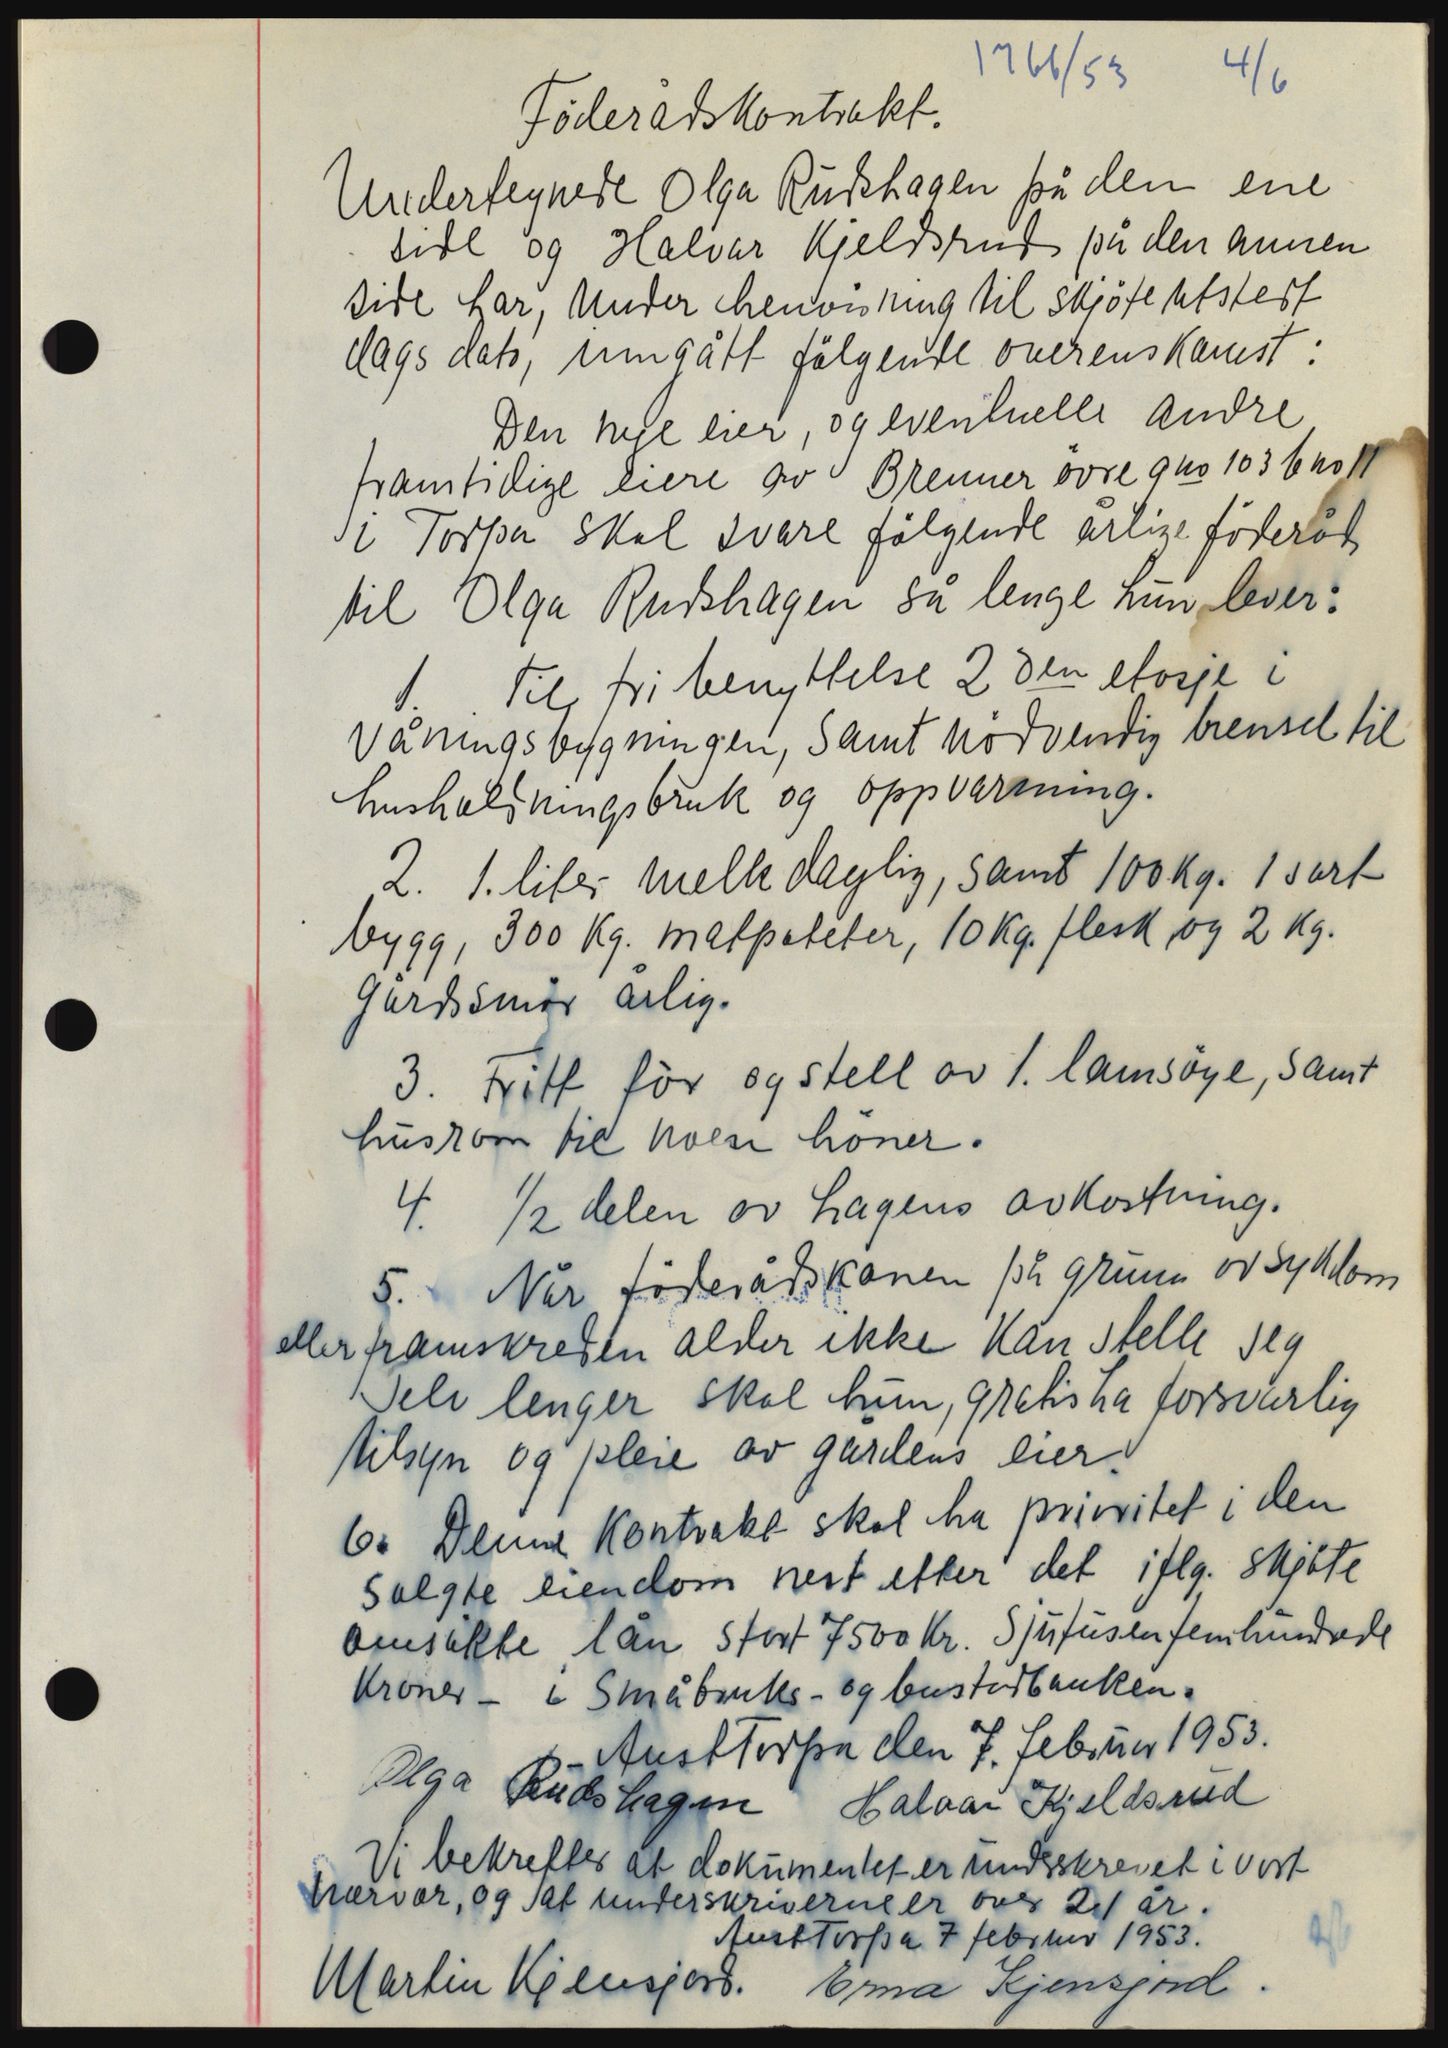 1766/53 4/6
Föderådskontrakt.
Undertegnede Olga Rudshagen på den ene
side og Halvar Kjeldsrud på den annen
side har, under henvisning til skjöte utstedt
dags dato, inngått fölgende overenskomst:
Den nye eier, og eventuelle andre
framtidige eiere av Brenner övre gno 103 bno 11
i Torpa skal svare fölgende årlige föderåd
til Olga Rudshagen så lenge hun lever:
1. Til fri benyttelse 2 den etasje i
våningsbygningen, samt nödvendig brensel til
husholdningsbruk og oppvarming.
2. 1. liter melk daglig, samt 100 kg. 1 sort
bygg, 300 kg. matpoteter, 10 kg. flesk og 2 kg.
gårdssmör årlig.
3. Fritt fôr og stell av 1. lamsöye, samt
husrom til noen höner.
4. 1/2 delen av hagens avkastning.
5. Når föderådskonen på grunn av sykdom
eller framskreden alder ikke kan stelle seg
selv lenger skal hun, gratis ha forsvarlig
tilsyn og pleie av gårdens eier.
6. Denne kontrakt skal ha prioritet i den
solgte eiendom nest etter det iflg. skjöte
omsökte lån stort 7500 kr. Sjutusenfemhundrede
kroner - i Småbruks- og bustadbanken.
Aust Torpa den 7. februar 1953.
Olga Rudshagen Halvar Kjeldsrud
Vi bekrefter at dokumentet er underskrevet i vort
nærvær, og at underskriverne er over 21 år.
Aust Torpa 7 februar 1953.
Martin Kjensjord. Erna Kjensjord.